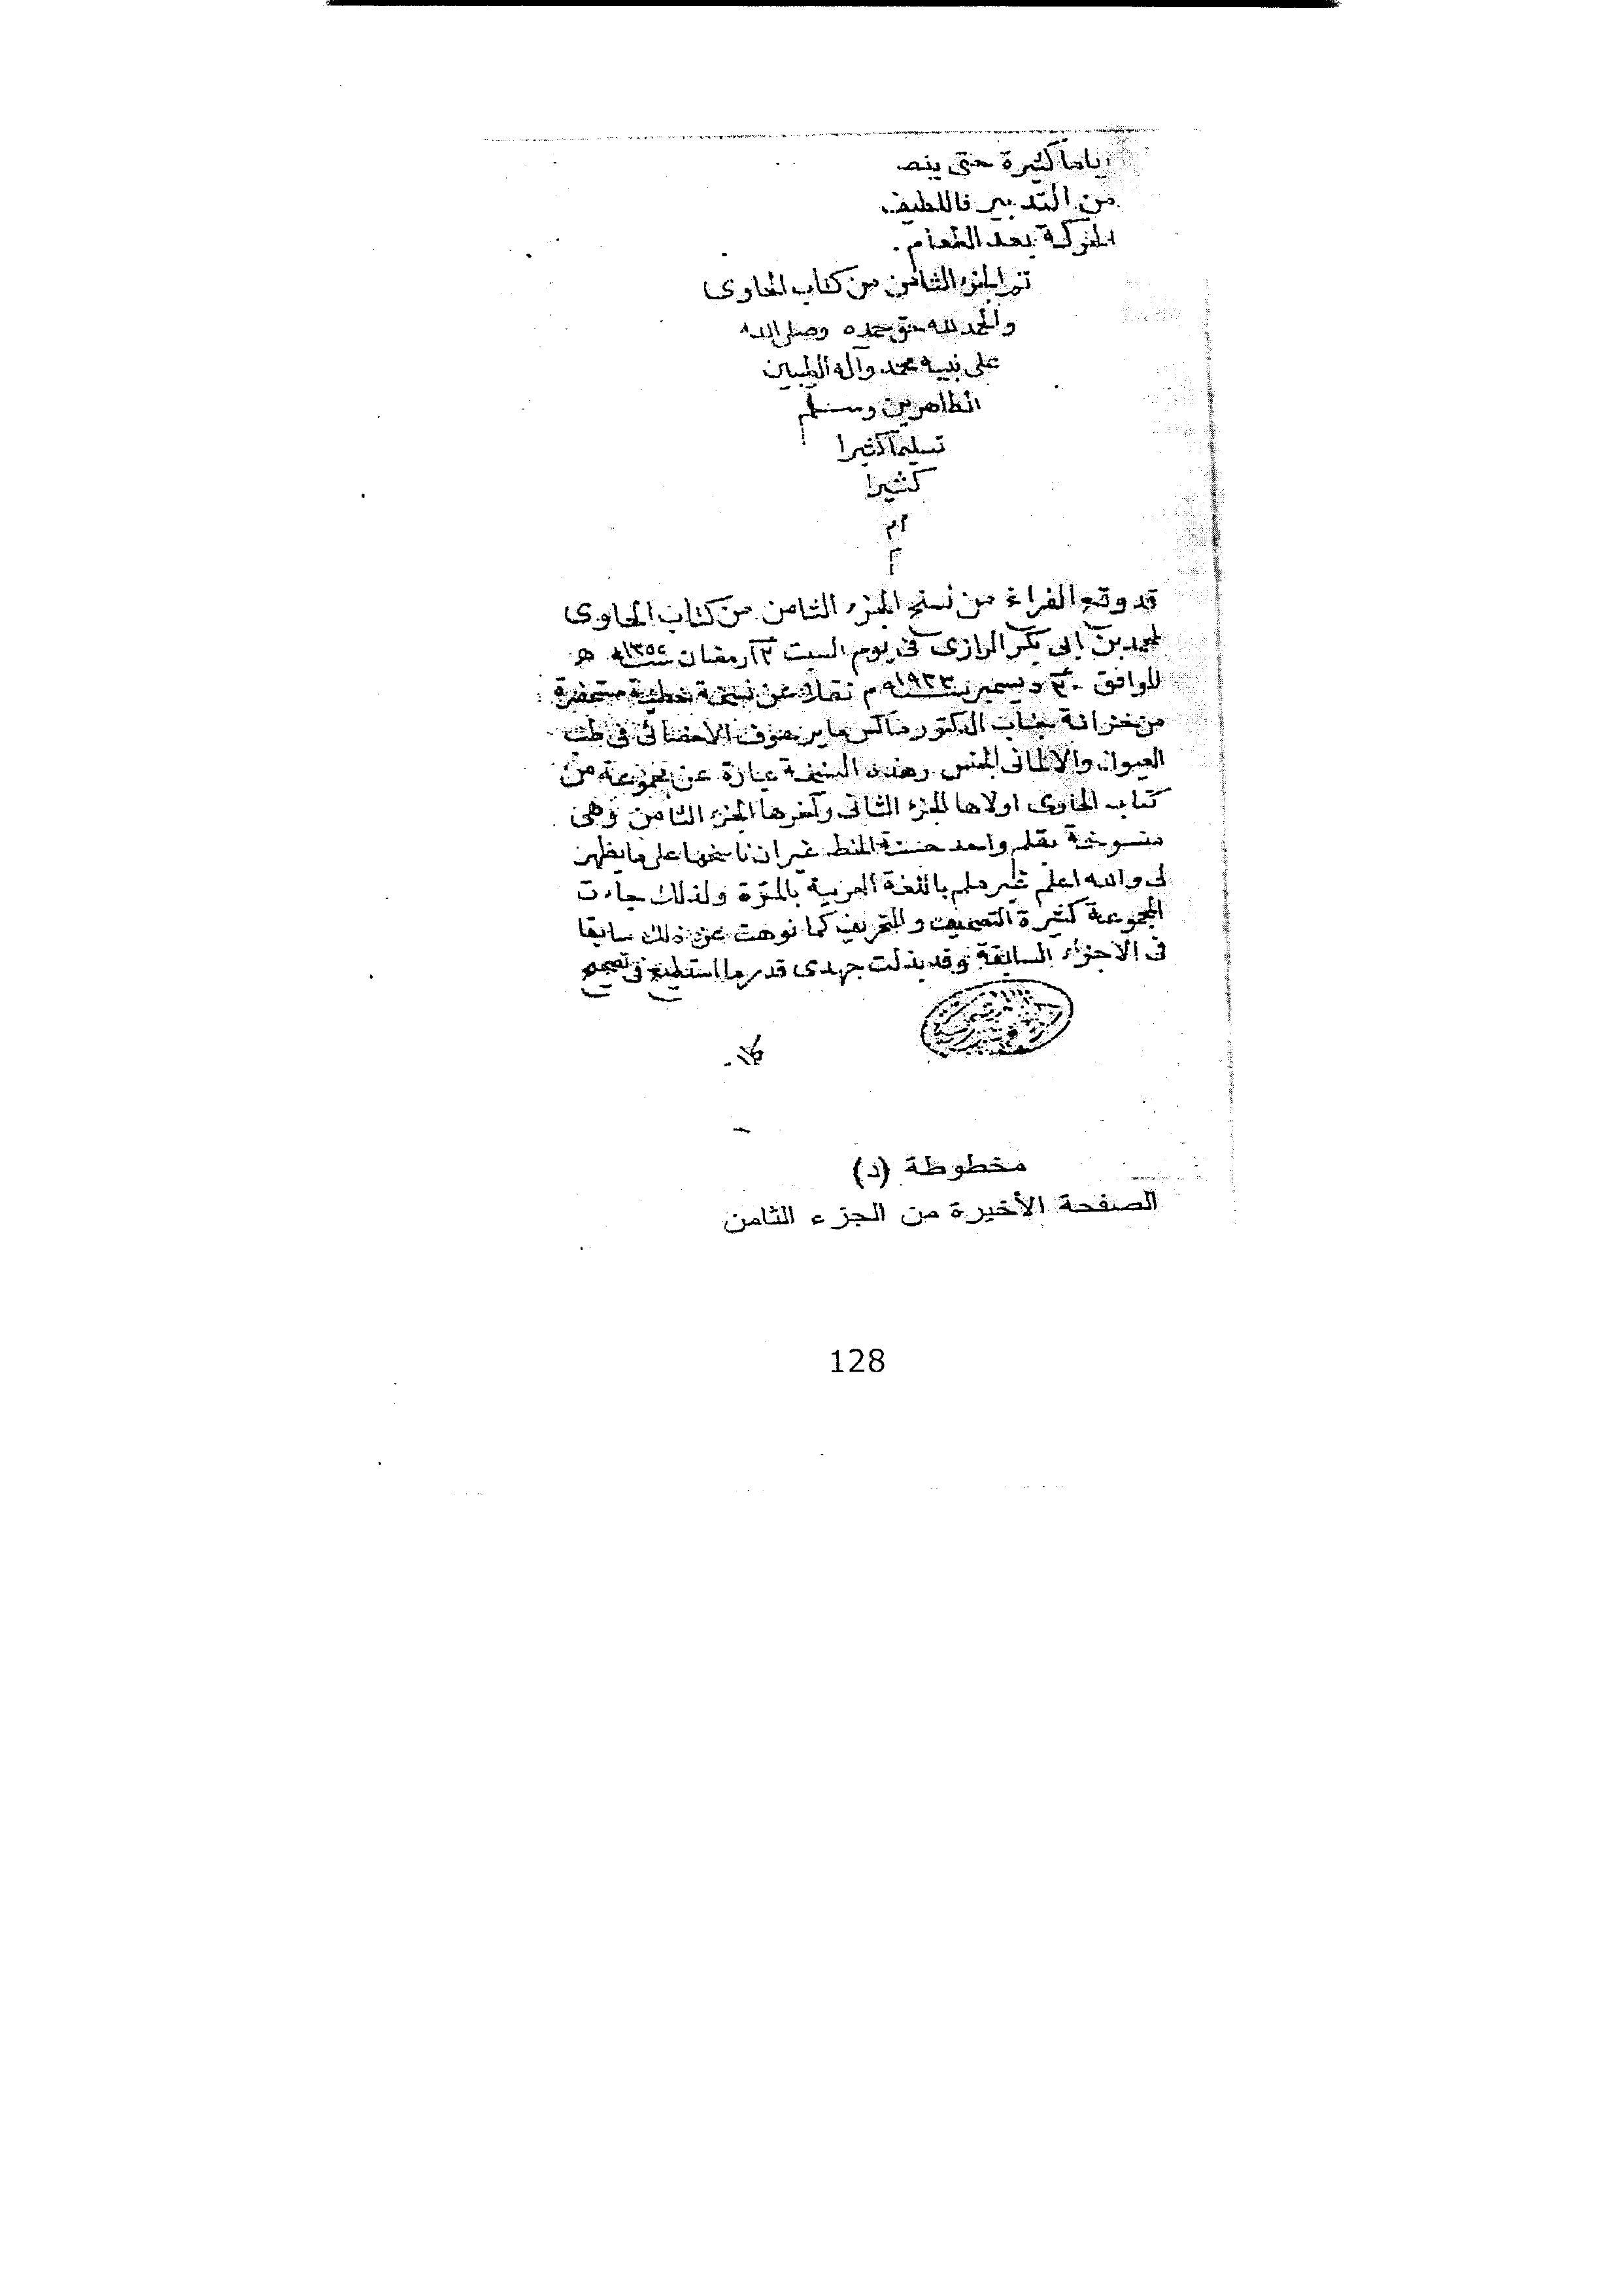 اياما كثيرة حتى ينص
من التدبير فاللطيف
الحركة بعد الطعام .
تم الجزء الثامن من كتاب الحاوى
والحمد لله حق حمده وصلى الله
على نبيه محمد وآله الطيبين
الطاهرين وسلم
تسليما كثيرا
كثيرا
ام
قد وقع الفراغ من نسخ الجزء الثامن من كتاب الحاوى
لمحمد بن ابى بكر الرازى فى يوم السبت رمضان سنة ١٣٥٢ ه
الموافق ٣٠ ديسمبر سنة ١٩٣٣ م نقلا عن نسخة خطية مستحضرة
من خزانة جناب الدكتور ماكس مايرهوف الاخصائى فى طب
العيون والالمانى الجنس وهذه النسخة عبارة عن مجموعة من
كتاب الحاوى اولاها الجزء الثانى وآخرها الجزء الثامن وهى
منسوخة بقلم واحد حسنة الخط غير ان ناسخها على ما يظهر
لى والله اعلم غير ملم باللغة العربية بالمرة ولذلك جاءت
المجموعة كثيرة التصحيف والتحريف كما نوهت عن ذلك سابقا
فى الاجزاء السابقة وقد بذلت جهدى قدر ما استطيع فى تصحيح
مخطوطة (د)
الصفحة الأخيرة من الجزء الثامن
128